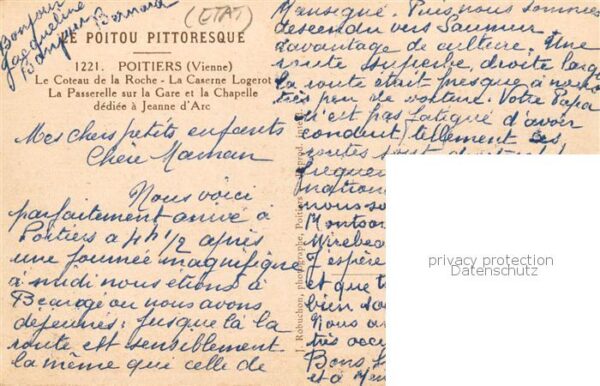 Bonjour
Jacqueline
Bonjour Bernard
(ETAT)
LE POITOU PITTORESQUE
1221. POITIERS (Vienne)
Le Coteau de la Roche - La Caserne Logerot
La Passerelle sur la Gare et la Chapelle
dédiée à Jeanne d'Arc
Mes chers petits enfants
Chère Maman
Nous voici
parfaitement arrivé à
Poitiers a 4h 1/2 après
une journée magnifique
à midi nous étions à
nous avons
déjeunés: jusque là la
route est sensiblement
la même que celle de
J. Robuchon, photographe, Poitiers
Puis nous sommes
descendu vers Saumur
davantage de culture. Une
route superbe, droite large
la route était presque à nous
très peu de voiture. Votre Papa
n'est pas fatigué d'avoir
conduit, tellement les
routes sont
nation
nous so
Montso
Mirebea
J'espère
et que t
bien so
Nous a
très occu
Bons
et à
privacy protection
Datenschutz